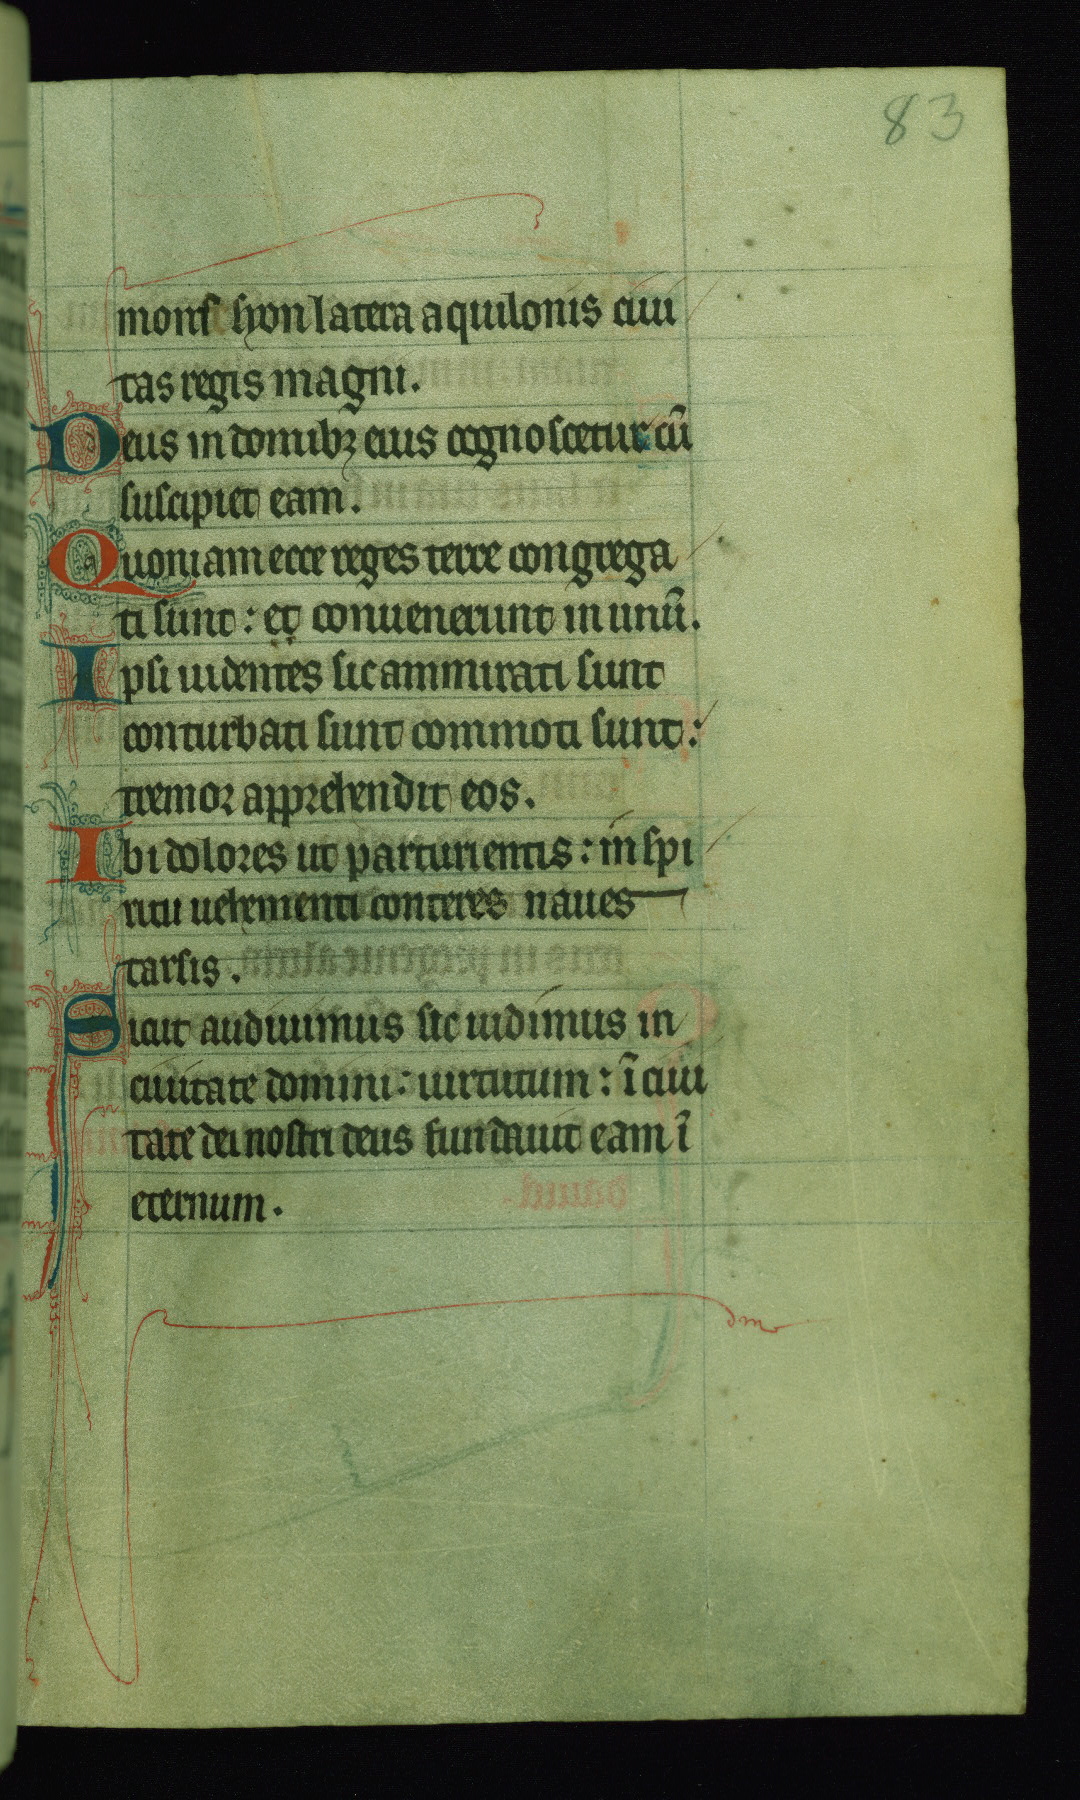 83
mons syon latera aquilonis ciui
tas regis magni.
Deus in domibꝫ eius cognoscetur cū
suscipiet eam.
Quoniam ecce reges terre congrega
ti sunt : et conuenerunt in unū.
Ipsi uidentes sic ammirati sunt
conturbati sunt commoti sunt :
tremor apprehendit eos.
Ibi dolores ut parturientis : in spi
ritu uehementi conteres naues
tarsis.
Sicut audiuimus sic uidimus in
ciuitate domini : uirtutum : ī ciui
tate dei nostri deus fundauit eam ī
eternum.